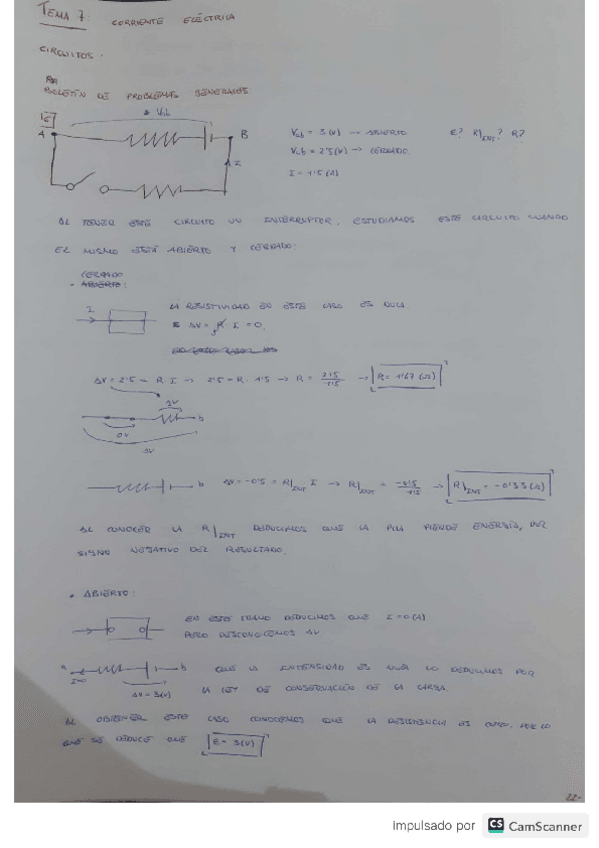 TEMA 7: CORRIENTE ELÉCTRICA
CIRCUITOS.
BOLETÍN DE PROBLEMAS GENERALES
A Vab B
I
Vab = 3(V) → ABIERTO E? R)INT? R?
Vab = 2'5(V) → CERRADO.
I = 1'5(A)
AL TENER ESTE CIRCUITO UN INTERRUPTOR, ESTUDIAMOS ESTE CIRCUITO CUANDO
EL MISMO ESTÁ ABIERTO Y CERRADO:
CERRADO
• ABIERTO:
I
LA RESISTIVIDAD EN ESTE CASO ES NULA.
ΔV = R I = 0.
ΔV = 2'5 = R. I → 2'5 = R. 1'5 → R = 2'5/1'5 → R = 1'67 (Ω)
ΔV
b
0V
ΔV
b ΔV = -0'5 = R)INT I → R)INT = -0'5/1'5 → R)INT = -0'33 (Ω)
AL CONOCER LA R)INT DEDUCIMOS QUE LA PILA PIERDE ENERGÍA, POR
SIGNO NEGATIVO DEL RESULTADO.
• ABIERTO:
EN ESTE TRAMO DEDUCIMOS QUE I = 0 (A)
PERO DESCONOCEMOS ΔV
a b QUE LA INTENSIDAD ES NULA LO DEDUCIMOS POR
I=0
ΔV = 3(V) LA LEY DE CONSERVACIÓN DE LA CARGA.
AL OBTENER ESTE CASO CONOCEMOS QUE LA RESISTENCIA ES POR LO
QUE SE DEDUCE QUE E = 3(V)
22-
Impulsado por CS CamScanner